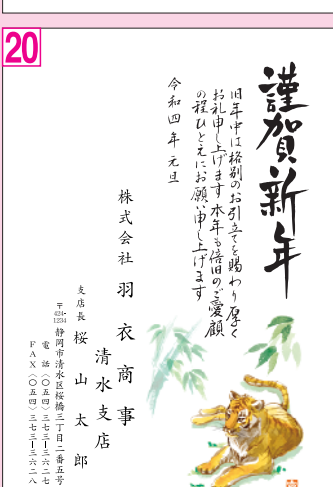 20
謹賀新年
旧年中は格別のお引立てを賜わり厚く
お礼申し上げます本年も倍旧のご愛顧
の程ひとえにお願い申し上げます
令和四年元旦
株式会社 羽衣商事
清水支店
支店長 桜山太郎
〒424-1234 静岡市清水区桜橋三丁目二番五号
電話〈〇五四〉三七三―三六二七
FAX〈〇五四〉三七三―三六二八